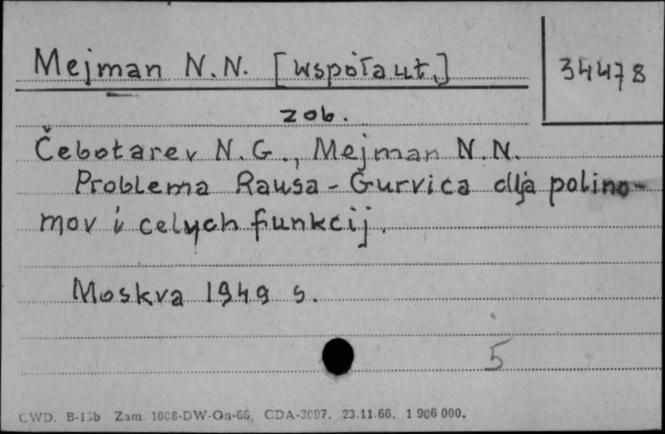 Mejman N.N. [współaut.]
34478
zob.
Čebotarev N.G., Mejman N.N.
Problema Rausa-Gurvica dlja polino-
mov i celych funkcij.
Moskva 1949 s.
5
CWD. B-13b Zam. 1008-DW-On-66, CDA-3097. 23.11.66. 1 906 000.